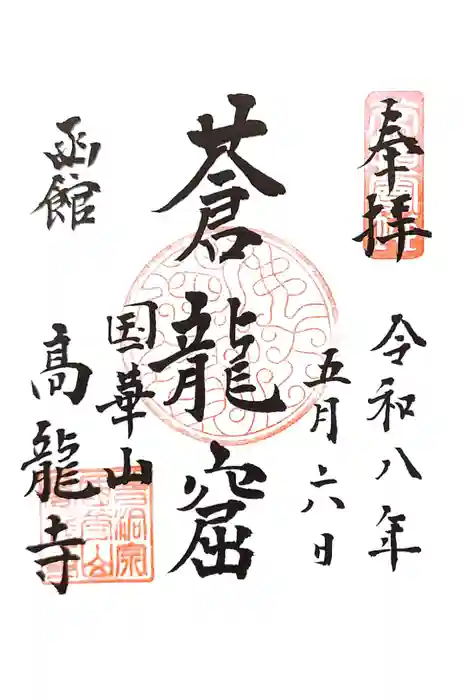 奉拝
令和八年
五月六日
蒼龍窟
国華山
函館
高龍寺